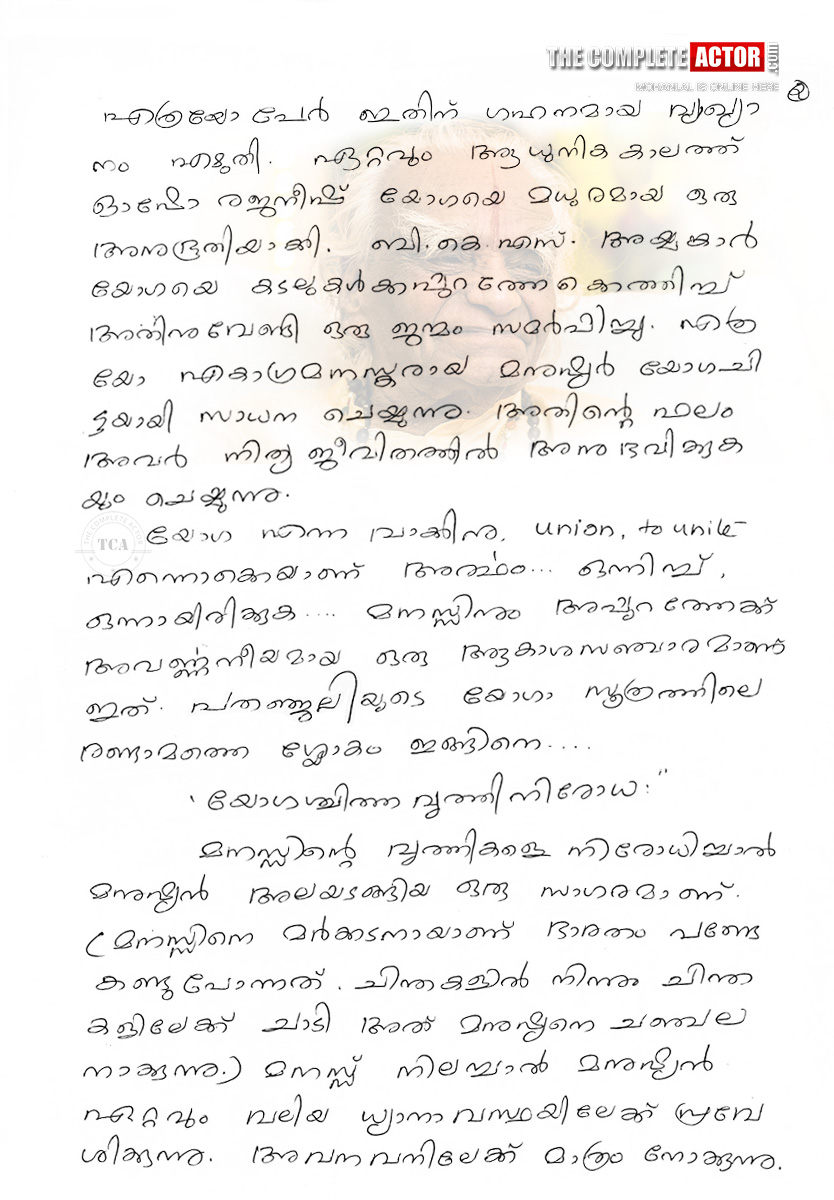 THE COMPLETE ACTOR .COM
MOHANLAL IS ONLINE HERE
2
എത്രയോ പേർ ഇതിന് ഗഹനമായ വ്യാഖ്യാ
നം എഴുതി. ഏറ്റവും ആധുനിക കാലത്ത്
ഓഷോ രജനീഷ് യോഗയെ മധുരമായ ഒരു
അനുഭൂതിയാക്കി. ബി.കെ.എസ്. അയ്യങ്കാർ
യോഗയെ കടലുകൾക്കപ്പുറത്തേക്കെത്തിച്ച്
അതിനുവേണ്ടി ഒരു ജന്മം സമർപ്പിച്ചു. എത്ര
യോ ഏകാഗ്രമനസ്കരായ മനുഷ്യർ യോഗചി
ട്ടയായി സാധന ചെയ്യുന്നു. അതിന്റെ ഫലം
അവർ നിത്യജീവിതത്തിൽ അനുഭവിക്കുക
യും ചെയ്യുന്നു.
THE COMPLETE ACTOR
TCA
യോഗ എന്ന വാക്കിനു, union, to unite
എന്നൊക്കെയാണ് അർത്ഥം... ഒന്നിച്ച്,
ഒന്നായിരിക്കുക .... മനസ്സിനും അപ്പുറത്തേക്ക്
അവർണ്ണനീയമായ ഒരു ആകാശസഞ്ചാരമാണ്
ഇത്. പതഞ്ജലിയുടെ യോഗാ സൂത്രത്തിലെ
രണ്ടാമത്തെ ശ്ലോകം ഇങ്ങിനെ....
' യോഗശ്ചിത്ത വൃത്തി നിരോധ: "
മനസ്സിന്റെ വൃത്തികളെ നിരോധിച്ചാൽ
മനുഷ്യൻ അലയടങ്ങിയ ഒരു സാഗരമാണ്.
(മനസ്സിനെ മർക്കടനായാണ് ഭാരതം പണ്ടേ
കണ്ടുപോന്നത്. ചിന്തകളിൽ നിന്നും ചിന്ത
കളിലേക്ക് ചാടി അത് മനുഷ്യനെ ചഞ്ചല
നാക്കുന്നു.) മനസ്സ് നിലച്ചാൽ മനുഷ്യൻ
ഏറ്റവും വലിയ ധ്യാനാവസ്ഥയിലേക്ക് പ്രവേ
ശിക്കുന്നു. അവനവനിലേക്ക് മാത്രം നോക്കുന്നു.